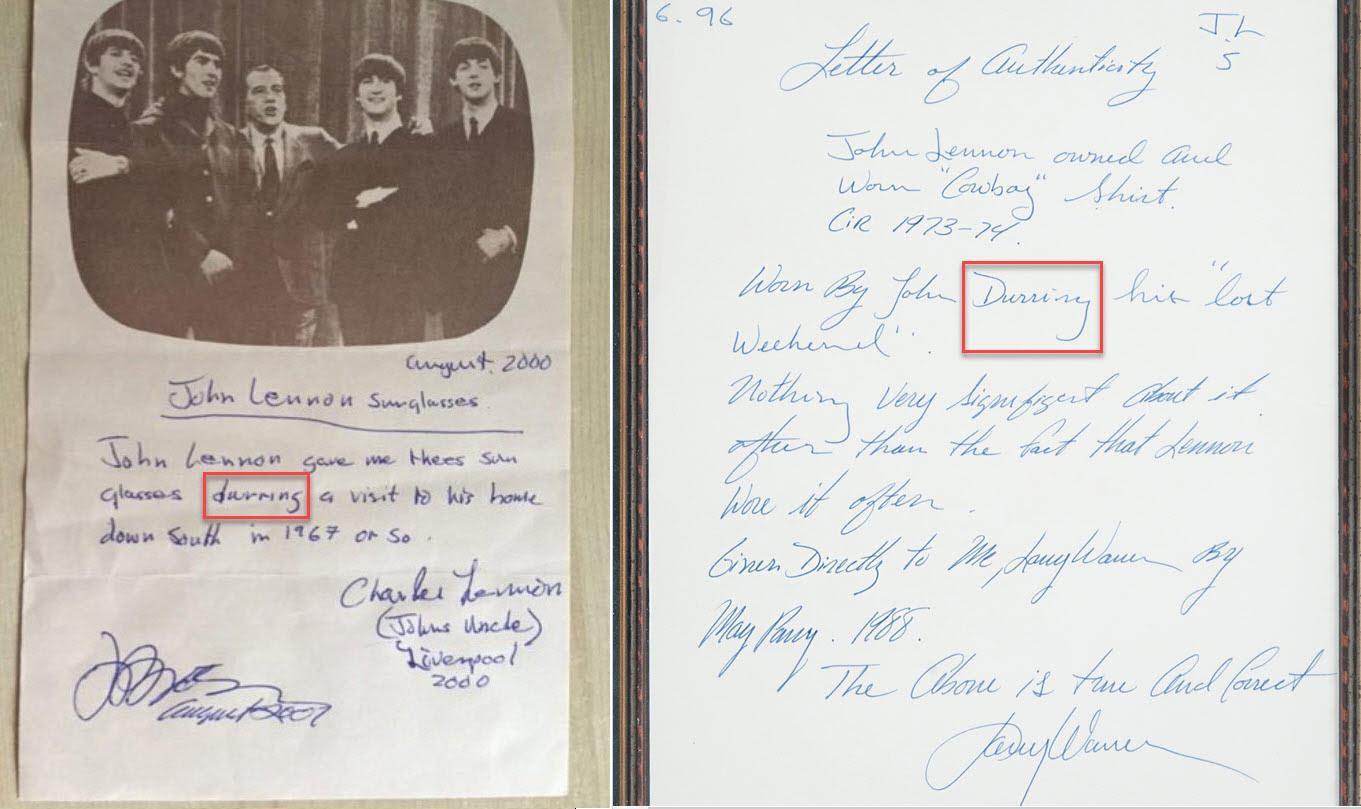 August. 2000
John Lennon sunglasses
John Lennon gave me thees sun
glasses durring a visit to his home
down South in 1967 or so.
Charles Lennon
(Johns Uncle)
Liverpool
2000
6.96
J.L
5
Letter of Authenticity
John Lennon owned and
Worn "Cowboy" Shirt.
CiR 1973-74.
Worn By John Durring his "lost
Weekend".
Nothing Very Signifigent about it
other than the fact that Lennon
Wore it often.
Given Directly to Me, Larry Warren By
May Pang. 1988.
The Above is true And Correct
Larry Warren